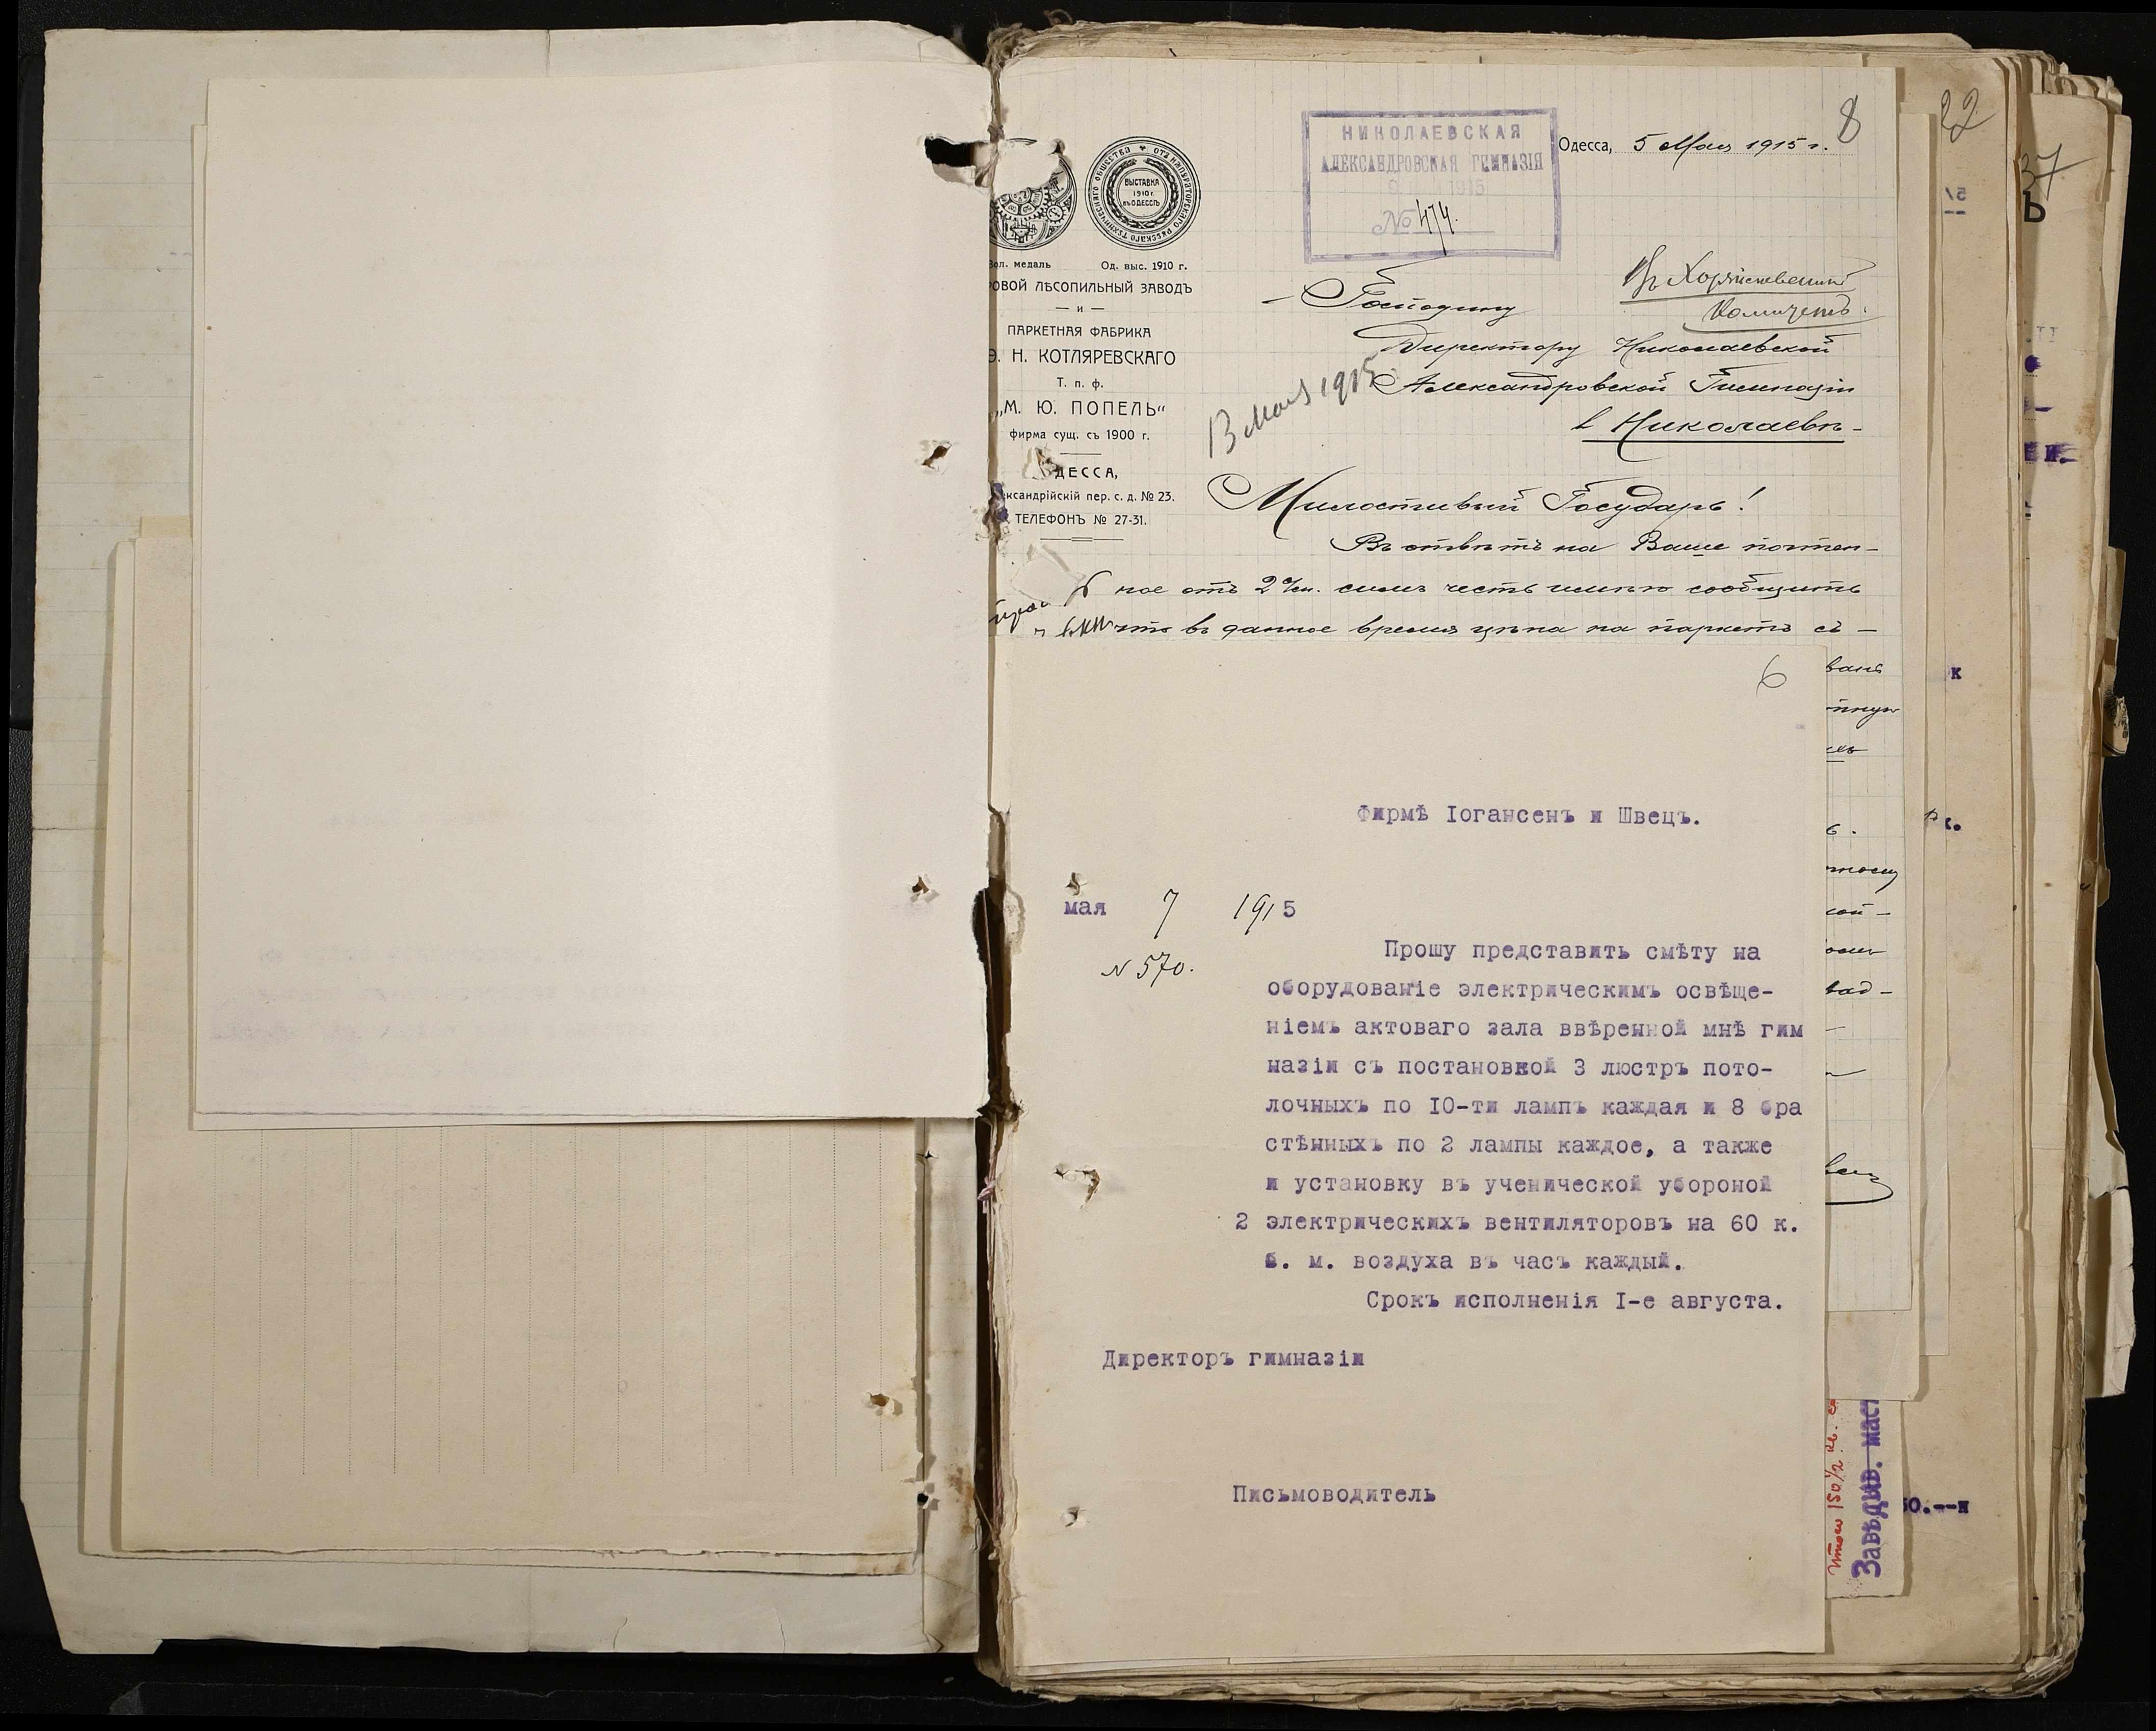 8
22
37
НИКОЛАЕВСКАЯ
АЛЕКСАНДРОВСКАЯ ГИМНАЗІЯ
1915
№ 474.
Одесса, 5 Мая 1915 г.
ВЫСТАВКА
1910 г.
въ ОДЕССѢ
ОТЪ ИМПЕРАТОРСКАГО РУССКАГО ТЕХНИЧЕСКАГО ОБЩЕСТВА
Зол. медаль Од. выс. 1910 г.
РОВОЙ ЛѢСОПИЛЬНЫЙ ЗАВОДЪ
— и —
ПАРКЕТНАЯ ФАБРИКА
Э. Н. КОТЛЯРЕВСКАГО
Т. п. ф.
„М. Ю. ПОПЕЛЬ“
фирма сущ. съ 1900 г.
ДЕССА,
ксандрійскій пер. с. д. № 23.
ТЕЛЕФОНЪ № 27-31.
Въ Хозяйственный
Комитетъ.
Господину
Директору Николаевской
Александровской Гимназіи
в Николаевѣ
13 Мая 1915
Милостивый Государь!
Въ отвѣтъ на Ваше почтен-
ное отъ 2 с/м. симъ честь имѣю сообщить
что въ данное время цѣна на паркетъ съ —
6
Фирмѣ Іогансенъ и Швецъ.
мая 7 1915
N 570.
Прошу представить смѣту на
оборудованіе электрическимъ освѣще-
ніемъ актоваго зала ввѣренной мнѣ гим
назіи съ постановкой 3 люстръ пото-
лочныхъ по I0-ти лампъ каждая и 8 бра
стѣнныхъ по 2 лампы каждое, а также
и установку въ ученической убороной
2 электрическихъ вентиляторовъ на 60 к.
б. м. воздуха въ часъ каждый.
Срокъ исполненія I-е августа.
Директоръ гимназіи
Письмоводитель
Завѣдыв. маст